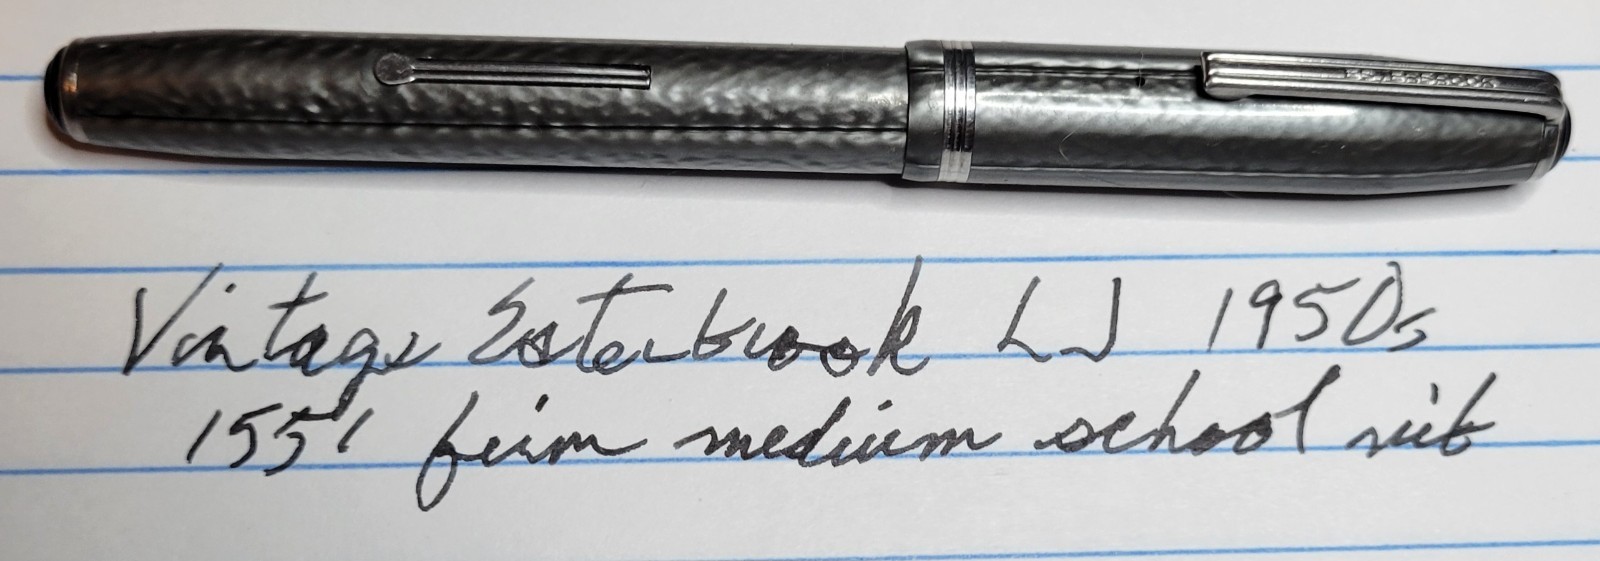 ESTERBROOK
Vintage Esterbrook LJ 1950s
1551 firm medium school nib